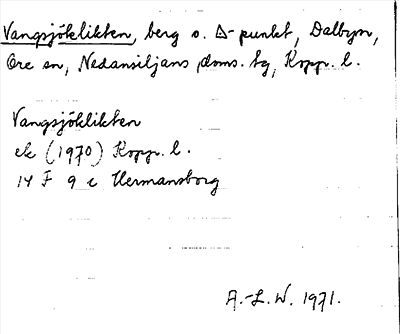 Vangsjöklikten, berg o. Δ-punkt, Dalbyn,
Ore sn, Nedansiljans doms. tg, Kopp. l.
Vangsjöklikten
ek (1970) Kopp. l.
14 F 9 c Hermansborg
A.-L. W. 1971.